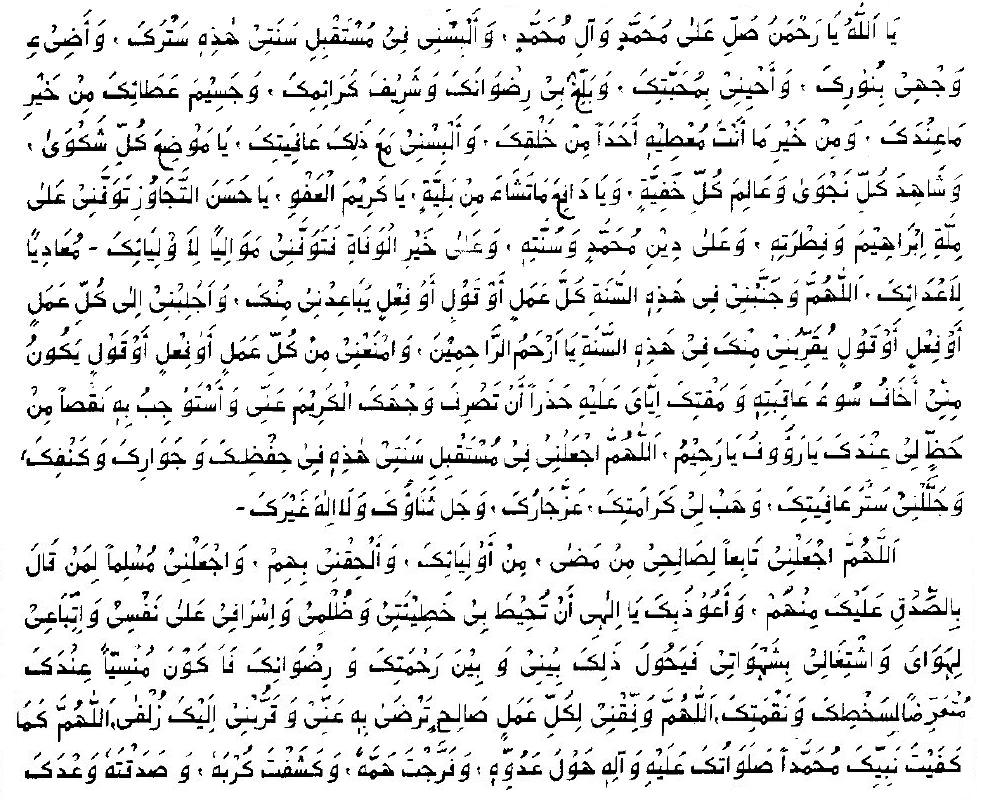 يَا اَللّٰهُ يَا رَحْمٰنُ صَلِّ عَلٰى مُحَمَّدٍ وَآلِ مُحَمَّدٍ ، وَأَلْبِسْنِى فِىْ مُسْتَقْبِلِ سَنَتِىْ هٰذِهٖ سَتْرَكَ ، وَأَضِىْءِ
وَجْهِىْ بِنُوْرِكَ ، وَأَحْيِنِىْ بِمُحَبَّتِكَ ، وَبَلِّغْ بِىْ رِضْوَانَكَ وَشَرِيْفَ كَرَائِمِكَ ، وَجَسِيْمَ عَطَائِكَ مِنْ خَيْرِ
مَاعِنْدَكَ ، وَمِنْ خَيْرِ مَا أَنْتَ مُعْطِيْهِ أَحَداً مِنْ خَلْقِكَ ، وَأَلْبِسْنِىْ مَعَ ذٰلِكَ عَافِيَتِكَ ، يَا مَوْضِعَ كُلِّ شَكْوَىٰ ،
وَشَاهِدَ كُلِّ نَجْوَىٰ وَعَالِمَ كُلِّ خَفِيَّةٍ ، وَيَا دَافِعَ مَاتَشَاءَ مِنْ بَلِيَّةٍ ، يَا كَرِيْمَ الْعَفْوِ ، يَا حَسَنَ التَّجَاوُزِ تَوَفَّنِىْ عَلٰى
مِلَّةِ اِبْرَاهِيْمَ وَفِطْرَتِهٖ ، وَعَلٰى دِيْنِ مُحَمَّدٍ وَسُنَّتِهٖ ، وَعَلٰى خَيْرِ الْوَفَاةِ فَتَوَفَّنِىْ مَوَالِيًا لِأَوْلِيَائِكَ - مُعَادِيًا
لِأَعْدَائِكَ ، اَللّٰهُمَّ وَجَنِّبْنِىْ فِى هٰذِهٖ السَّنَةِ كُلَّ عَمَلٍ أَوْ قَوْلٍ أَوْ فِعْلٍ يُبَاعِدُنِىْ مِنْكَ ، وَاَجْلِبْنِىْ اِلٰى كُلِّ عَمَلٍ
أَوْ فِعْلٍ أَوْ قَوْلٍ يُقَرِّبُنِىْ مِنْكَ فِىْ هٰذِهٖ السَّنَةِ يَا أَرْحَمَ الرَّاحِمِيْنَ ، وَامْنَعْنِىْ مِنْ كُلِّ عَمَلٍ أَوْ فِعْلٍ أَوْ قَوْلٍ يَكُوْنُ
مِنِّىْ أَخَافُ سُوْءَ عَاقِبَتِهٖ وَ مَقْتِكَ اِيَّاىَ عَلَيْهِ حَذَراً أَنْ تَصْرِفَ وَجْهَكَ الْكَرِيْمَ عَنِّى وَأَسْتَوْجِبُ بِهٖ نَقْصاً مِنْ
حَظٍّ لِىْ عِنْدَكَ يَارَؤُوفُ يَارَحِيْمُ ، اَللّٰهُمَّ اجْعَلْنِىْ فِىْ مُسْتَقْبِلِ سَنَتِىْ هٰذِهٖ فِىْ حِفْظِكَ وَ جَوَارِكَ وَ كَنَفِكَ ،
وَ جَلِّلْنِىْ سَتْرَعَافِيَتِكَ ، وَ هَبْ لِىْ كَرَامَتِكَ ، عَزَّجَارُكَ ، وَجَلَ ثَنَاؤُكَ وَ لَا اِلٰهَ غَيْرَكَ -
اَللّٰهُمَّ اجْعَلْنِىْ تَابِعاً لِصَالِحِىْ مِنْ مَضٰى ، مِنْ أَوْلِيَائِكَ ، وَأَلْحِقْنِى بِهِمْ ، وَاجْعَلْنِىْ مُسْلِماً لِمَنْ قَالَ
بِالصِّدْقِ عَلَيْكَ مِنْهُمْ ، وَأَعُوْذُبِكَ يَا اِلٰهِى أَنْ تُحِيْطَ بِىْ خَطِيْئَتِىْ وَ ظُلْمِىْ وَ اِسْرَافِىْ عَلٰى نَفْسِىْ وَاِتِّبَاعِىْ
لِهَوَاىَ وَاشْتِغَالِىْ بِشَهَوَاتِىْ فَيَحُوْلَ ذٰلِكَ بَيْنِىْ وَ بَيْنَ رَحْمَتِكَ وَ رِضْوَانِكَ فَأَكُوْنَ مُنْسِيًّا عِنْدَكَ
مُتَعَرِّضًا لِسَخْطِكَ وَ نَقْمَتِكَ ، اَللّٰهُمَّ وَفِّقْنِىْ لِكُلِّ عَمَلٍ صَالِحٍ تَرْضٰى بِهٖ عَنِّىْ وَ قَرِّبْنِىْ اِلَيْكَ زُلْفٰى ، اَللّٰهُمَّ كَمَا
كَفَيْتَ نَبِيَّكَ مُحَمَّداً صَلَوَاتُكَ عَلَيْهِ وَآلِهٖ هَوْلَ عَدُوِّهٖ ، وَفَرَّجْتَ هَمَّهُ ، وَ كَشَفْتَ كُرْبَهُ ، وَ صَدَقْتَهُ وَعْدَكَ